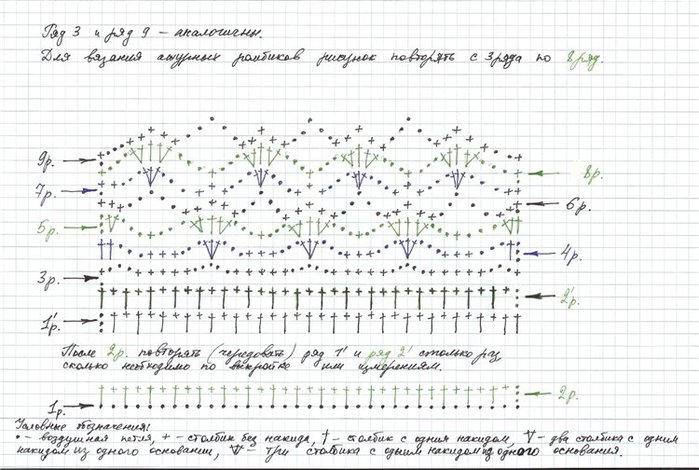 Ряд 3 и ряд 9 - аналогичны.
Для вязания ажурных ромбиков рисунок повторять с 3 ряда по 8 ряд.
9р.
8р.
7р.
6р.
5р.
4р.
3р.
2'р.
1'р.
После 2р. повторять (чередовать) ряд 1' и ряд 2' столько раз
сколько необходимо по выкройке или измерениям.
2р.
1р.
Условные обозначения:
• - воздушная петля, + - столбик без накида, † - столбик с одним накидом, - два столбика с одним
накидом из одного основания, - три столбика с одним накидом из одного основания.